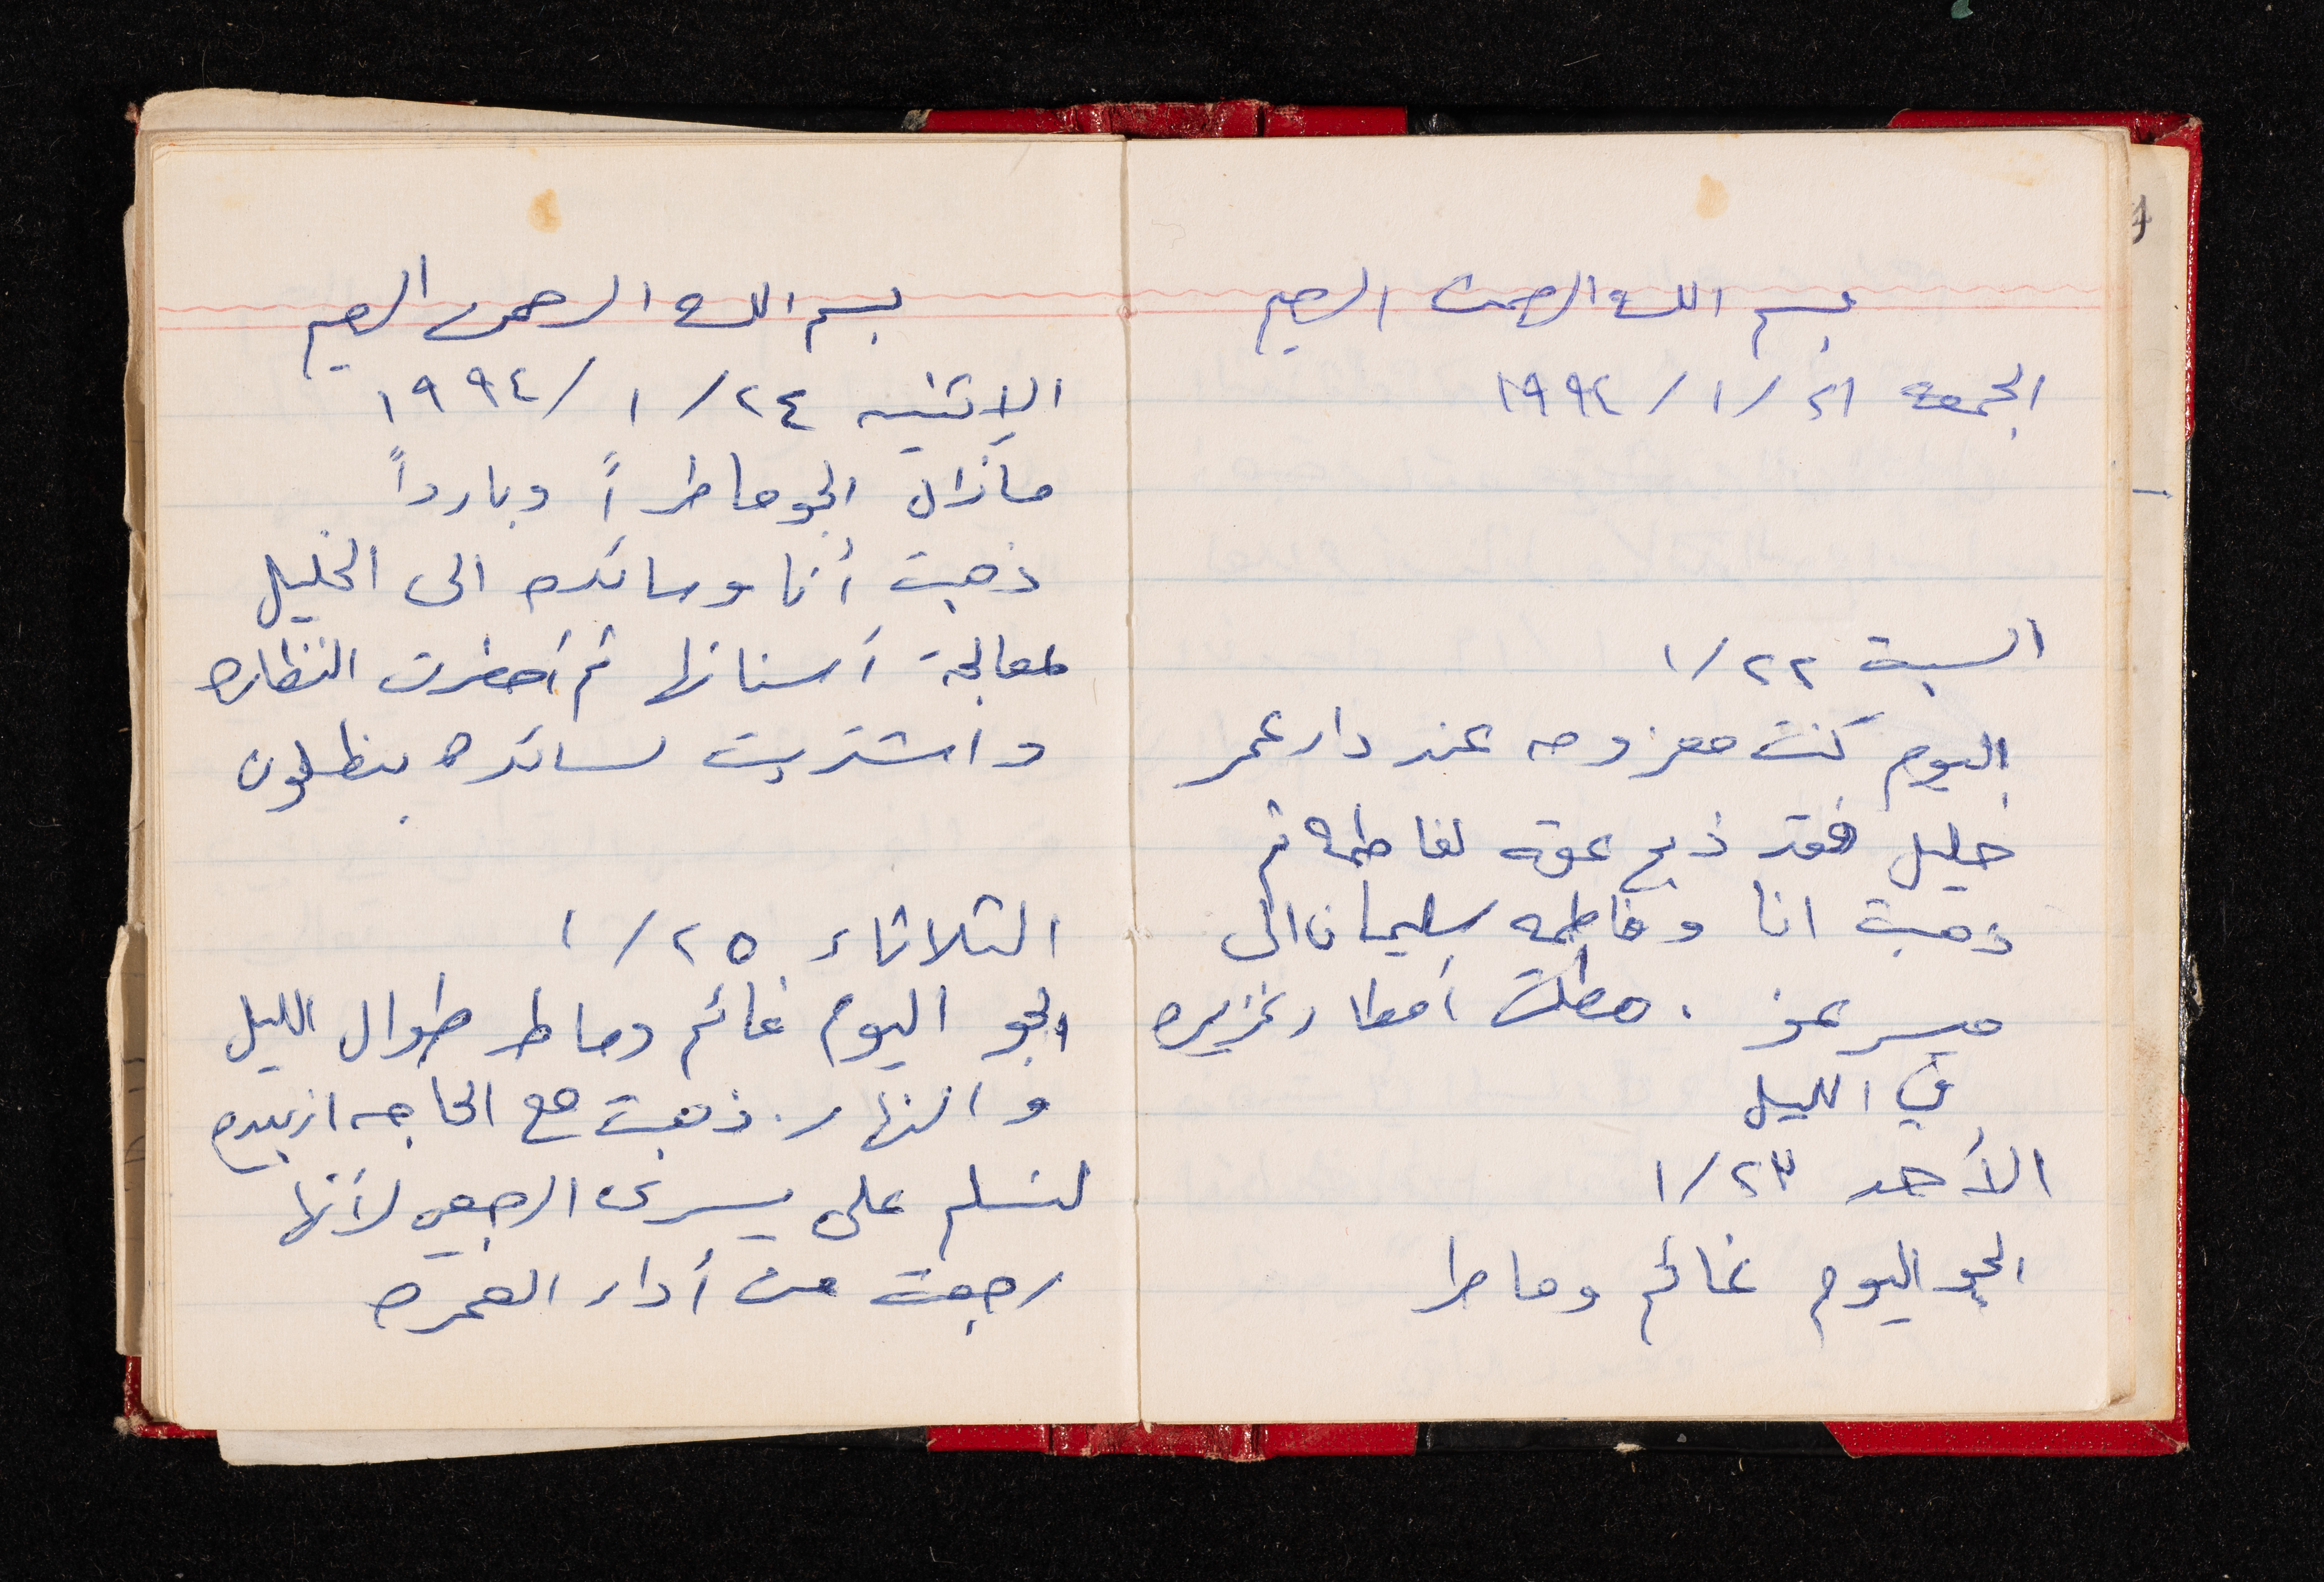 بسم الله الرحمن الرحيم
الجمعه ٢١ / ١ / ١٩٩٤
السبت ٢٢ / ١
اليوم كنت معزومه عند دار عمر
خليل فقد ذبح عقه لفاطمه ثم
ذهبت انا وفاطمه سليمان الى
ميسر عز . هطلت أمطار غزيره
في الليل
الأحد ٢٣ / ١
الجو اليوم غائم وماطرا
بسم الله الرحمن الرحيم
الإثنين ٢٤ / ١ / ١٩٩٤
مازال الجو ماطراً وبارداً
ذهبت أنا وسائده الى الخليل
لمعالجة أسنانها ثم أحضرت النظاره
واشتريت لسائده بنطلون
الثلاثاء ٢٥ / ١
الجو اليوم غائم وماطر طوال الليل
والنهار . ذهبت مع الحاجه ازبيده
لنسلم على يسرى الرجعي لأنها
رجعت من أداء العمره